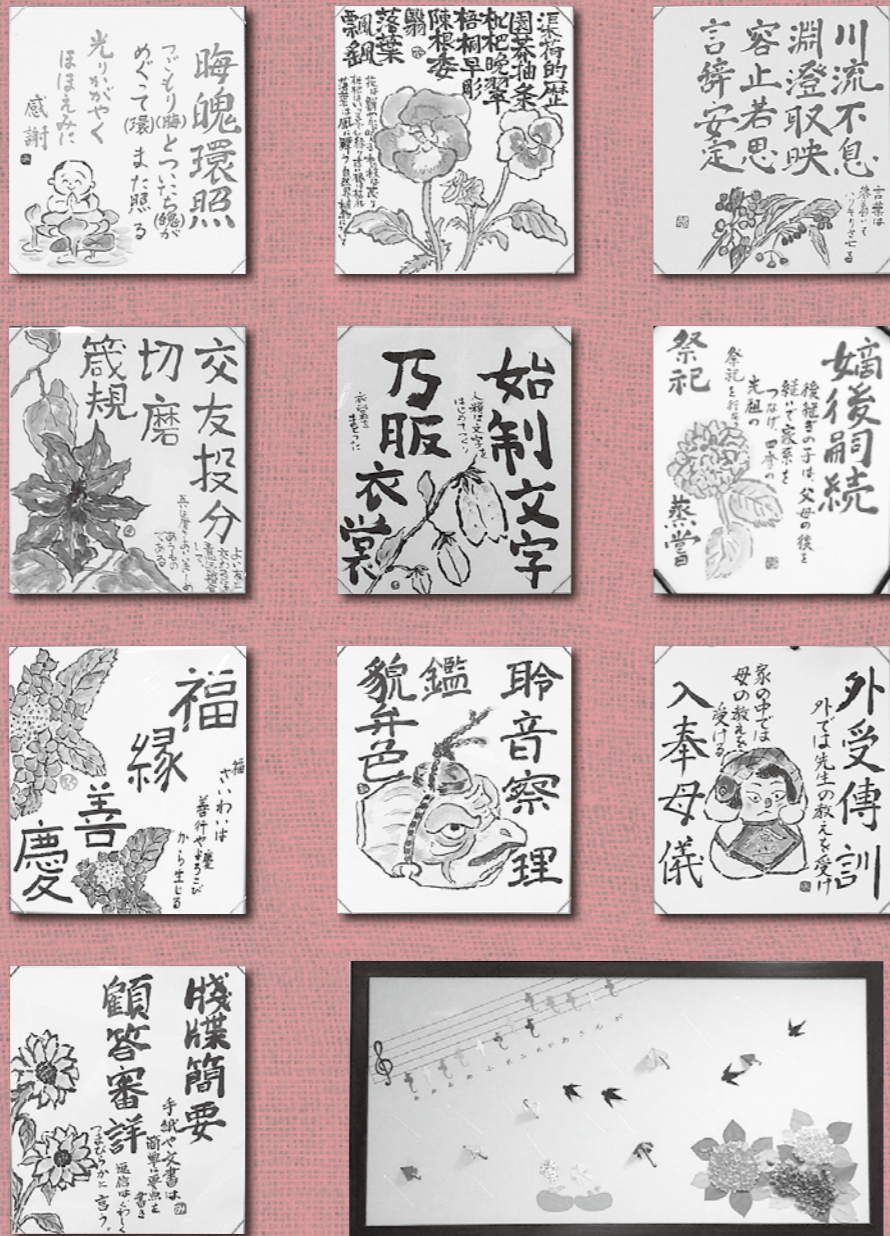 晦魄環照
つごもり(晦)とついたち(魄)が
めぐって(環)また照る
光りかがやく
ほほえみに
感謝
渠荷的歴
園莽抽条
枇杷晩翠
梧桐早彫
陳根委
翳
落葉
飄颻
川流不息
淵澄取映
容止若思
言辞安定
言葉は
交友投分
切磨
箴規
始制文字
人類は文字を
はじめてつくり
乃服
衣裳
衣裳を
まとった
嫡後嗣続
後継ぎの子は、父母の後を
継いで家系を
つなげ、四季の
先祖の
祭祀を行う
祭祀
蒸嘗
福
縁
善
慶
福
さいわいは
善行や慶
よろこび
から生じる
聆音察理
鑑
貌弁色
外受傅訓
外では先生の教えを受け
家の中では
母の教えを
受ける
入奉母儀
牋牒簡要
顧答審詳
手紙や文書は
簡単に要点を
書き
返信はくわしく
つまびらかに言う。